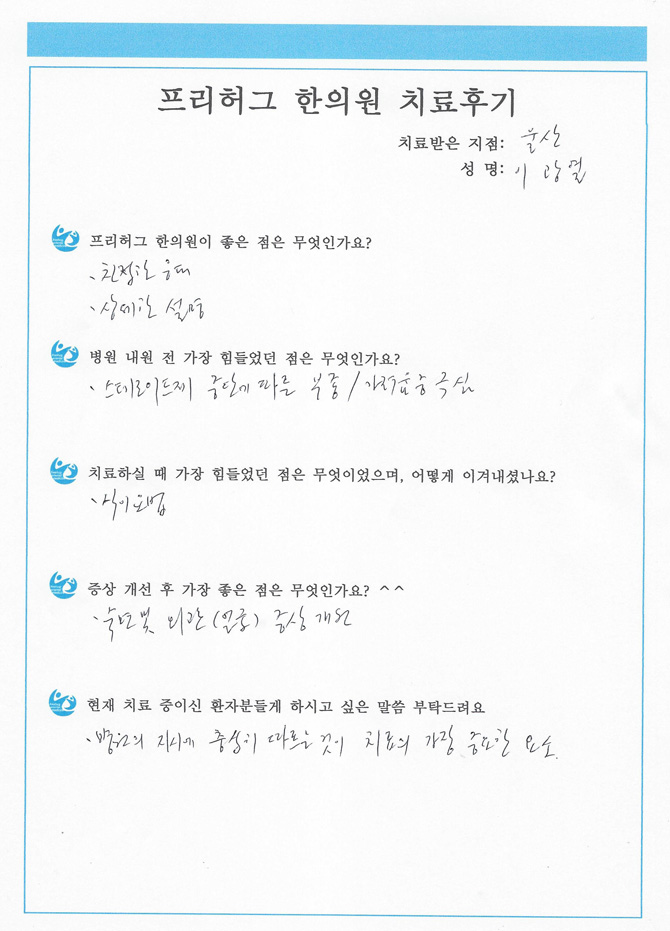 프리허그 한의원 치료후기
치료받은 지점: 울산
성 명: 이 광열
프리허그 한의원이 좋은 점은 무엇인가요?
、친절한 응대
、상세한 설명
병원 내원 전 가장 힘들었던 점은 무엇인가요?
、스테로이드제 중단에 따른 부종/가려움증 극심
치료하실 때 가장 힘들었던 점은 무엇이었으며, 어떻게 이겨내셨나요?
、식이요법
증상 개선 후 가장 좋은 점은 무엇인가요? ^^
、숙면 및 외관(얼굴) 증상 개선
현재 치료 중이신 환자분들게 하시고 싶은 말씀 부탁드려요
、병원의 지시에 충실히 따르는 것이 치료의 가장 중요한 요소.